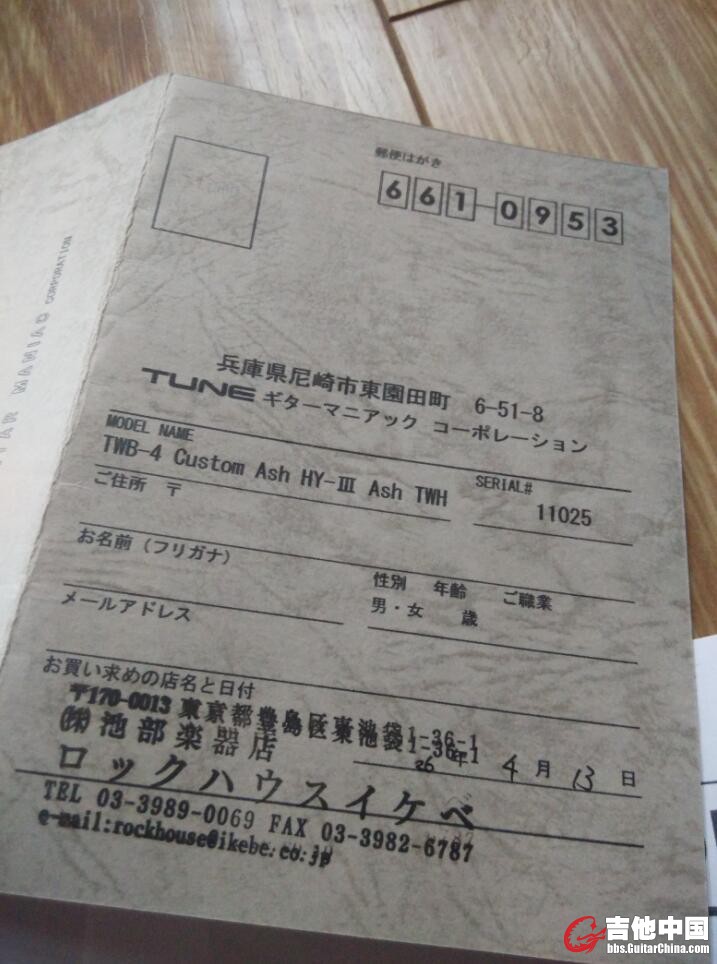 郵便はがき
661-0953
兵庫県尼崎市東園田町 6-51-8
TUNE ギターマニアック コーポレーション
MODEL NAME
TWB-4 Custom Ash HY-Ⅲ Ash TWH
SERIAL#
11025
ご住所 〒
お名前（フリガナ）
性別 年齢 ご職業
男・女 歳
メールアドレス
お買い求めの店名と日付
〒170-0013 東京都豊島区東池袋1-36-1
㈱池部楽器店
26年 4月 13日
ロックハウスイケベ
TEL 03-3989-0069 FAX 03-3982-6787
e-mail:rockhouse@ikebe.co.jp
CORPORATION
吉他中国
bbs.GuitarChina.com